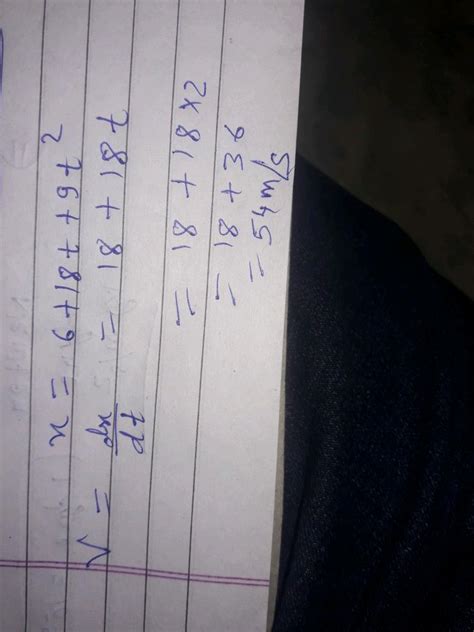 x = 6+18t+9t²
V = dx/dt = 18 + 18t
= 18 + 18×2
= 18 + 36
= 54 m/s